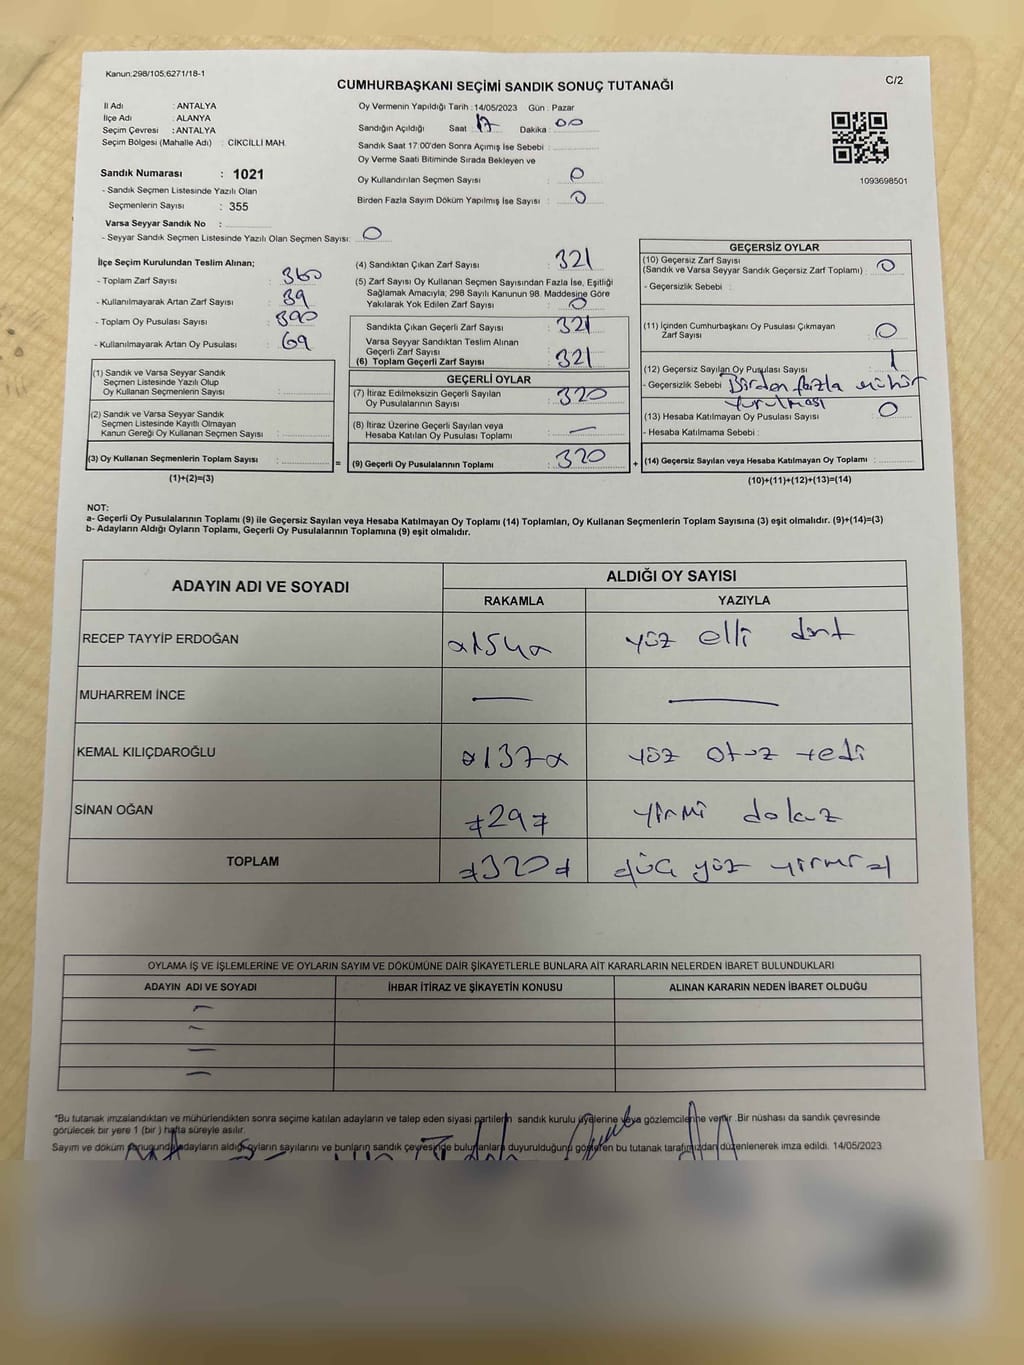 Kanun:298/105;6271/18-1
CUMHURBAŞKANI SEÇİMİ SANDIK SONUÇ TUTANAĞI
C/2
İl Adı : ANTALYA
İlçe Adı : ALANYA
Seçim Çevresi : ANTALYA
Seçim Bölgesi (Mahalle Adı) : CİKCİLLİ MAH.
Sandık Numarası : 1021
- Sandık Seçmen Listesinde Yazılı Olan
Seçmenlerin Sayısı : 355
Varsa Seyyar Sandık No :
- Seyyar Sandık Seçmen Listesinde Yazılı Olan Seçmen Sayısı: 0
Oy Vermenin Yapıldığı Tarih :14/05/2023 Gün : Pazar
Sandığın Açıldığı Saat 17 Dakika : 00
Sandık Saat 17:00'den Sonra Açımış İse Sebebi :
Oy Verme Saati Bitiminde Sırada Bekleyen ve
Oy Kullandırılan Seçmen Sayısı : 0
Birden Fazla Sayım Döküm Yapılmış İse Sayısı : 0
1093698501
İlçe Seçim Kurulundan Teslim Alınan;
- Toplam Zarf Sayısı : 360
- Kullanılmayarak Artan Zarf Sayısı : 39
- Toplam Oy Pusulası Sayısı : 390
- Kullanılmayarak Artan Oy Pusulası : 69
(1) Sandık ve Varsa Seyyar Sandık
Seçmen Listesinde Yazılı Olup
Oy Kullanan Seçmen Sayısı :
(2) Sandık ve Varsa Seyyar Sandık
Seçmen Listesinde Kayıtlı Olmayan
Kanun Gereği Oy Kullanan Seçmen Sayısı :
(3) Oy Kullanan Seçmenlerin Toplam Sayısı :
(1)+(2)=(3)
(4) Sandıktan Çıkan Zarf Sayısı : 321
(5) Zarf Sayısı Oy Kullanan Seçmen Sayısından Fazla İse, Eşitliği
Sağlamak Amacıyla; 298 Sayılı Kanunun 98. Maddesine Göre
Yakılarak Yok Edilen Zarf Sayısı : 0
Sandıkta Çıkan Geçerli Zarf Sayısı : 321
Varsa Seyyar Sandıktan Teslim Alınan
Geçerli Zarf Sayısı :
(6) Toplam Geçerli Zarf Sayısı : 321
GEÇERLİ OYLAR
(7) İtiraz Edilmeksizin Geçerli Sayılan
Oy Pusulalarının Sayısı : 320
(8) İtiraz Üzerine Geçerli Sayılan veya
Hesaba Katılan Oy Pusulası Toplamı : —
= (9) Geçerli Oy Pusulalarının Toplamı : 320 +
GEÇERSİZ OYLAR
(10) Geçersiz Zarf Sayısı
(Sandık ve Varsa Seyyar Sandık Geçersiz Zarf Toplamı) : 0
- Geçersizlik Sebebi :
(11) İçinden Cumhurbaşkanı Oy Pusulası Çıkmayan
Zarf Sayısı : 0
(12) Geçersiz Sayılan Oy Pusulası Sayısı : 1
- Geçersizlik Sebebi : Birden fazla mühür
vurulması
(13) Hesaba Katılmayan Oy Pusulası Sayısı : 0
- Hesaba Katılmama Sebebi :
(14) Geçersiz Sayılan veya Hesaba Katılmayan Oy Toplamı :
(10)+(11)+(12)+(13)=(14)
NOT:
a- Geçerli Oy Pusulalarının Toplamı (9) ile Geçersiz Sayılan veya Hesaba Katılmayan Oy Toplamı (14) Toplamları, Oy Kullanan Seçmenlerin Toplam Sayısına (3) eşit olmalıdır. (9)+(14)=(3)
b- Adayların Aldığı Oyların Toplamı, Geçerli Oy Pusulalarının Toplamına (9) eşit olmalıdır.
ADAYIN ADI VE SOYADI ALDIĞI OY SAYISI
RAKAMLA YAZIYLA
RECEP TAYYİP ERDOĞAN 154 yüz elli dört
MUHARREM İNCE — —
KEMAL KILIÇDAROĞLU 137 yüz otuz yedi
SİNAN OĞAN ≠29≠ yirmi dokuz
TOPLAM ≠320≠ üç yüz yirmi
OYLAMA İŞ VE İŞLEMLERİNE VE OYLARIN SAYIM VE DÖKÜMÜNE DAİR ŞİKAYETLERLE BUNLARA AİT KARARLARIN NELERDEN İBARET BULUNDUKLARI
ADAYIN ADI VE SOYADI İHBAR İTİRAZ VE ŞİKAYETİN KONUSU ALINAN KARARIN NEDEN İBARET OLDUĞU
—
—
—
—
*Bu tutanak imzalandıktan ve mühürlendikten sonra seçime katılan adayların ve talep eden siyasi partilerin sandık kurulu üyelerine veya gözlemcilerine verilir .Bir nüshası da sandık çevresinde
görülecek bir yere 1 (bir ) hafta süreyle asılır.
Sayım ve döküm sonucunda adayların aldığı oyların sayılarını ve bunların sandık çevresinde bulunanlara duyurulduğunu gösteren bu tutanak tarafımızdan düzenlenerek imza edildi. 14/05/2023